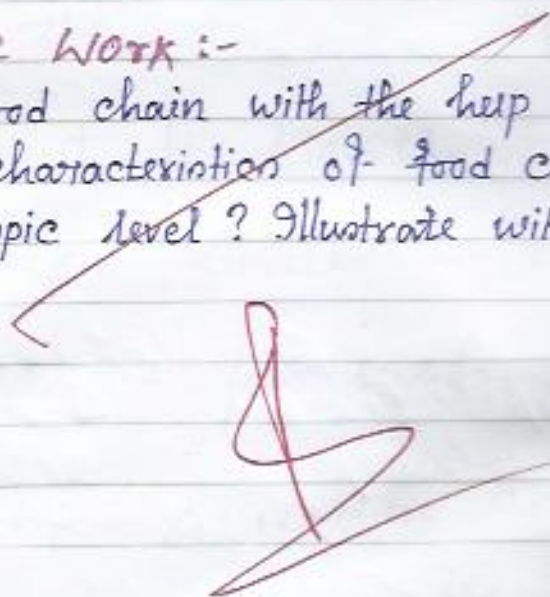 Work :-
od chain with the help
characteristics of food c
pic level ? Illustrate wi